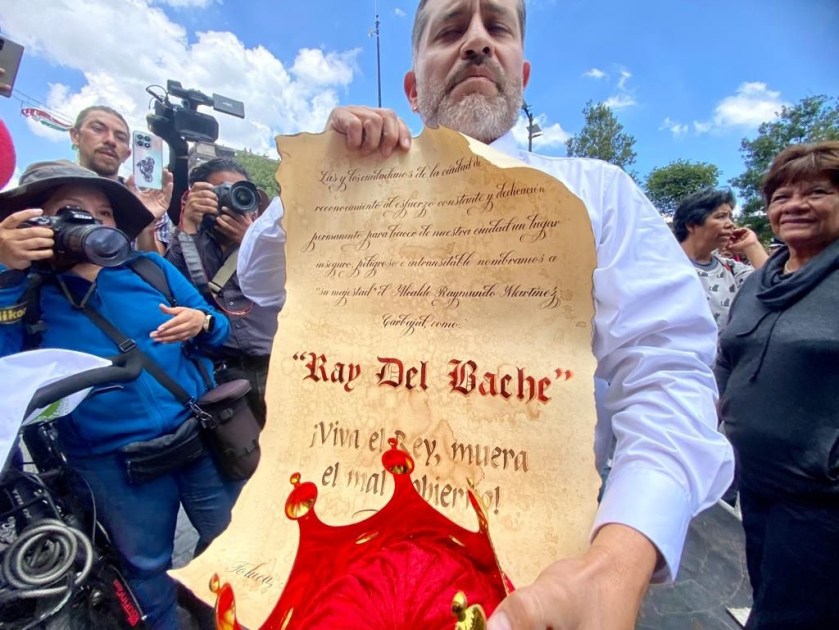 Las y los ciudadanos de la ciudad de
reconocimiento al esfuerzo constante y dedicación
permanente para hacer de nuestra ciudad un lugar
inseguro, peligroso e intransitable nombramos a
"su majestad" el Alcalde Raymundo Martínez
Carbajal, como:
"Ray Del Bache"
¡Viva el Rey, muera
el mal gobierno!
Toluca,